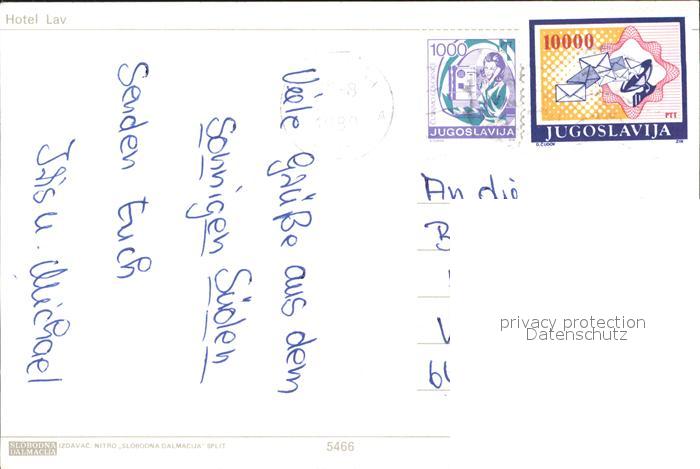 Hotel Lav
1000
JUGOSLAVIJA
10000
PTT
JUGOSLAVIJA
Viele Grüße aus dem
Sonnigen Süden
Senden Euch
Iris u. Michael
An die
privacy protection
Datenschutz
SLOBODNA
DALMACIJA
IZDAVAČ: NITRO „SLOBODNA DALMACIJA" SPLIT
5466